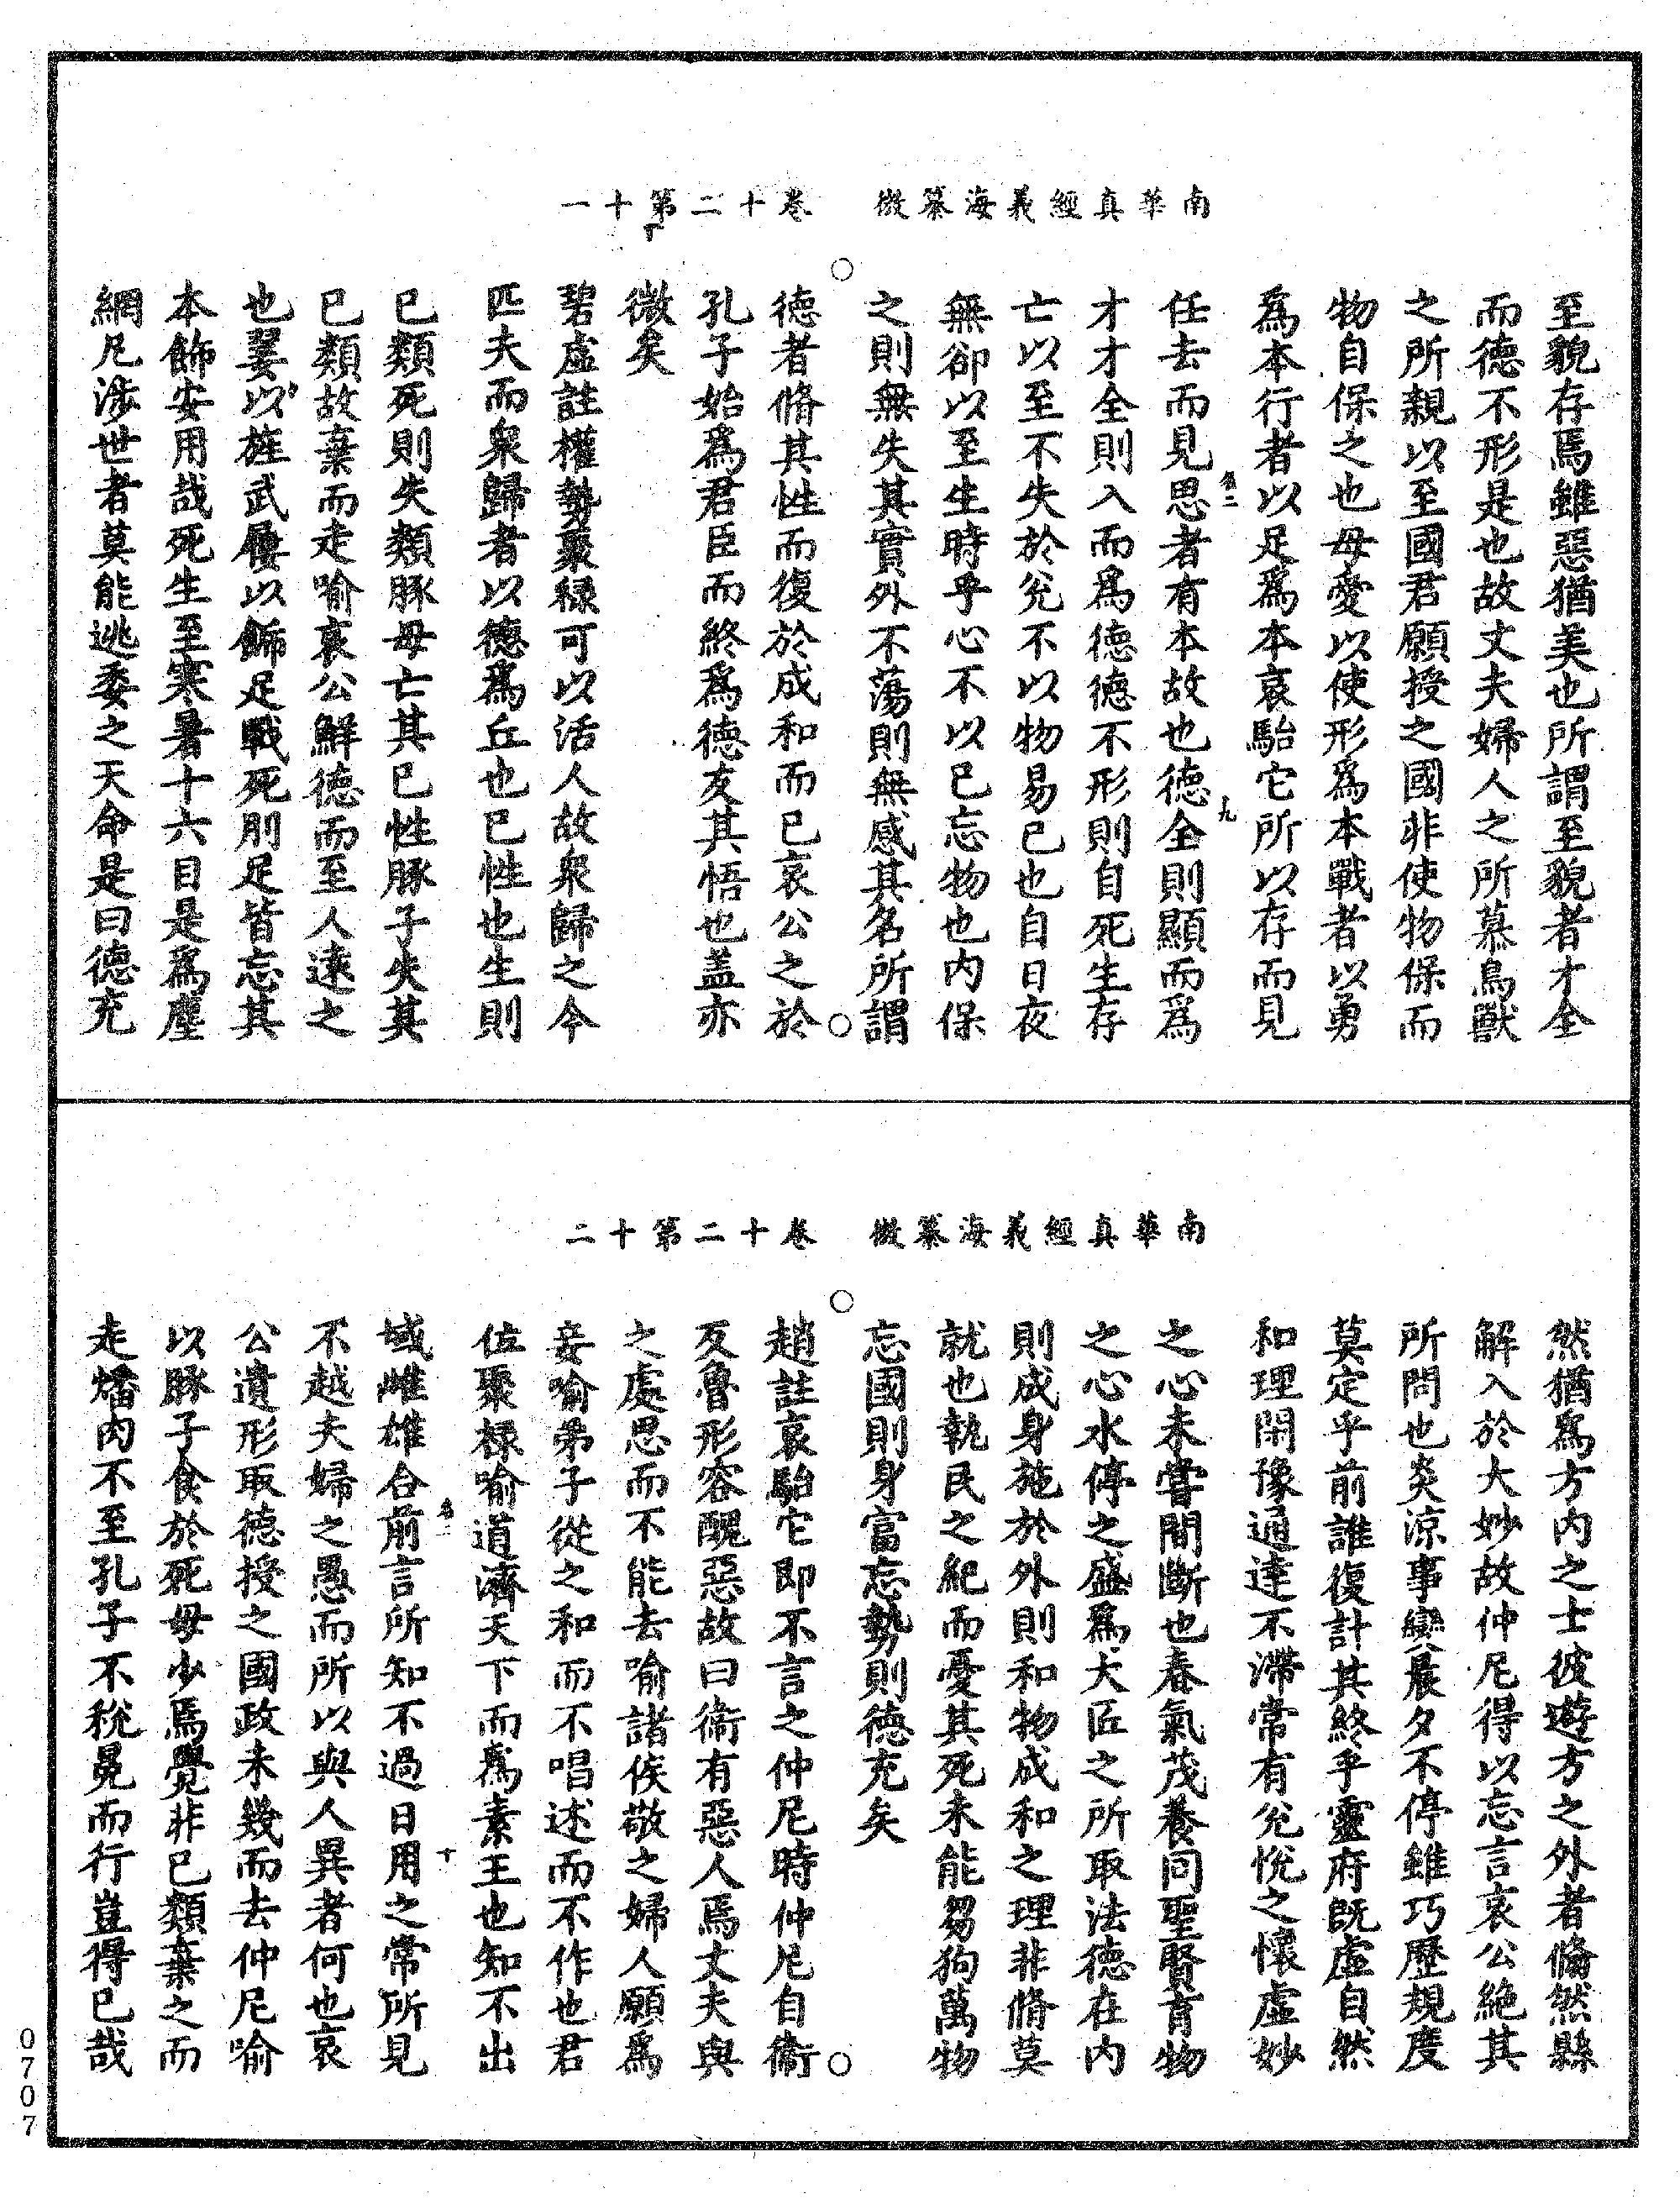 南華真經義海纂微　卷十二第十一
至貌存焉雖惡猶美也所謂至貌者才全
而德不形是也故丈夫婦人之所慕鳥獸
之所親以至國君願授之國非使物保而
物自保之也母愛以使形爲本戰者以勇
爲本行者以足爲本哀駘它所以存而見
任去而見思者有本故也德全則顯而爲
才才全則入而爲德德不形則自死生存
亡以至不失於兊不以物易已也自日夜
無郤以至生時乎心不以已忘物也内保
之則無失其實外不蕩則無感其名所謂
德者脩其性而復於成和而已哀公之於
孔子始爲君臣而終爲德友其悟也盖亦
微矣
碧虛註權勢聚禄可以活人故衆歸之今
匹夫而衆歸者以德爲丘也已性也生則
已類死則失類豚母亡其已性豚子失其
已類故棄而走喻哀公鮮德而至人遠之
也翣以旌武屨以飾足戰死刖足皆忘其
本飾安用哉死生至寒暑十六目是爲塵
網凡涉世者莫能逃委之天命是曰德充
南華真經義海纂微　卷十二第十二
然猶爲方内之士彼遊方之外者脩然縣
解入於大妙故仲尼得以忘言哀公絶其
所問也炎涼事變晨夕不停雖巧歷規度
莫定乎前誰復計其終乎靈府旣虛自然
和理閑豫通達不滯常有兊悅之懷虛妙
之心未嘗間斷也春氣茂養同聖賢育物
之心水停之盛爲大匠之所取法德在内
則成身施於外則和物成和之理非脩莫
就也執民之紀而憂其死未能芻狗萬物
忘國則身富忘勢則德充矣
趙註哀駘它即不言之仲尼時仲尼自衞
反魯形容醜惡故曰衞有惡人焉丈夫與
之處思而不能去喻諸侯敬之婦人願爲
妾喻弟子從之和而不唱述而不作也君
位聚禄喻道濟天下而爲素王也知不出
域雌雄合前言所知不過日用之常所見
不越夫婦之愚而所以與人異者何也哀
公遺形取德授之國政未幾而去仲尼喻
以豚子食於死母少焉覺非已類棄之而
走燔肉不至孔子不稅冕而行豈得已哉
0707